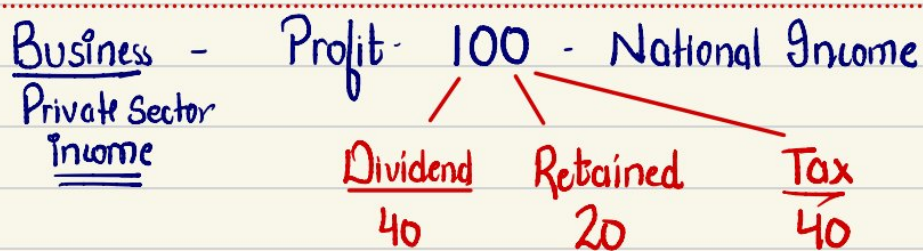 Business - Profit - 100 - National Income
Private Sector
Income
Dividend Retained Tax
40 20 40